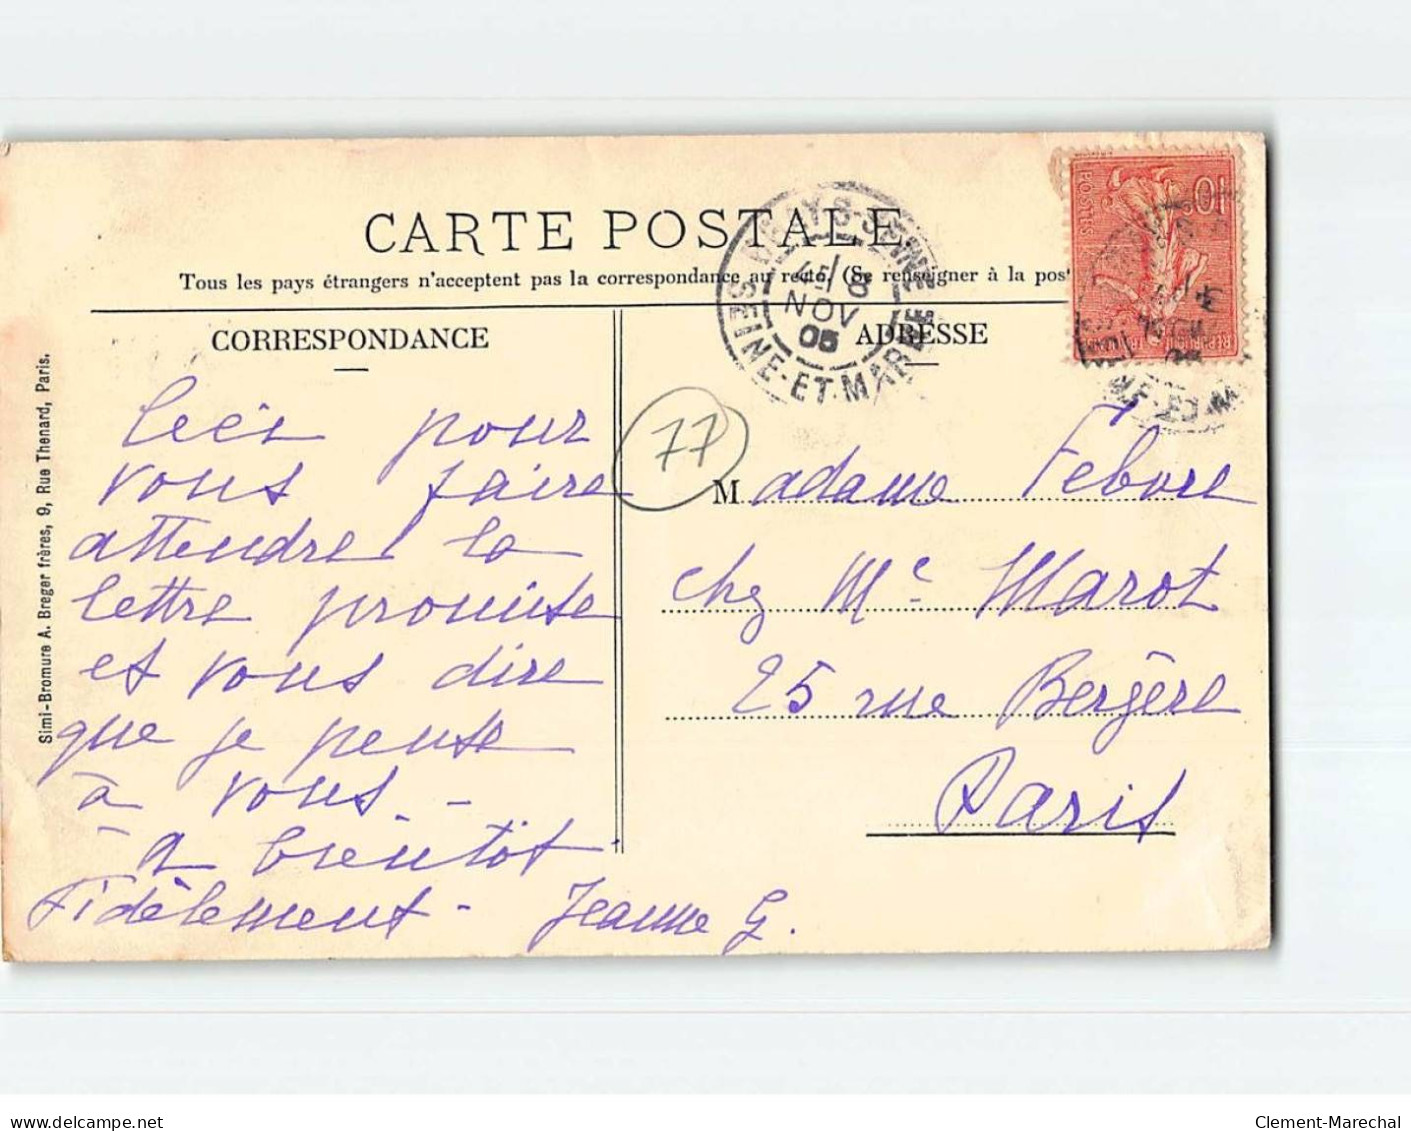 CARTE POSTALE
Tous les pays étrangers n'acceptent pas la correspondance au recto. (Se renseigner à la post
CORRESPONDANCE
ADRESSE
SEINE-ET-MARNE
8
NOV
05
10
POSTES
Simi-Bromure A. Breger frères, 9, Rue Thenard, Paris.
77
Ceci pour
vous faire
attendre la
lettre promise
et vous dire
que je pense
à vous -
à bientôt.
Fidèlement - Jeanne G.
Madame Febvre
chez Me Marot
25 rue Bergère
Paris
delcampe.net
Clement-Marechal